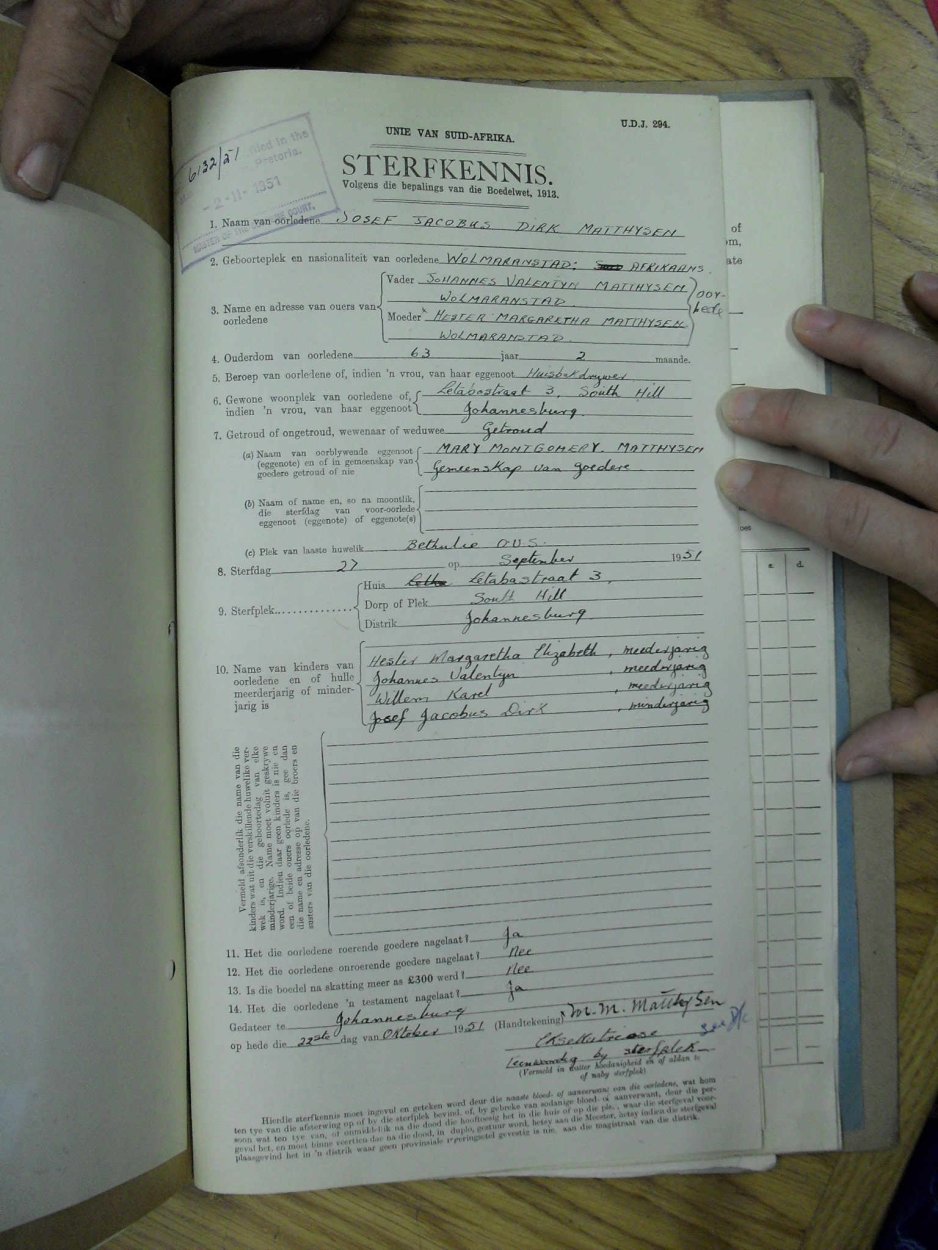 U.D.J. 294.
UNIE VAN SUID-AFRIKA.
STERFKENNIS.
Volgens die bepalings van die Boedelwet, 1913.
6132/51
in the
Pretoria.
-2-11-1951
MASTER OF THE SUPREME COURT.
1. Naam van oorledene JOSEF JACOBUS DIRK MATTHYSEN
2. Geboorteplek en nasionaliteit van oorledene WOLMARANSTAD: AFRIKAANS.
3. Name en adresse van ouers van oorledene
Vader JOHANNES VALENTYN MATTHYSEN
WOLMARANSTAD
Moeder HESTER MARGARETHA MATTHYSEN
WOLMARANSTAD
4. Ouderdom van oorledene 63 jaar 2 maande.
5. Beroep van oorledene of, indien 'n vrou, van haar eggenoot
6. Gewone woonplek van oorledene of, indien 'n vrou, van haar eggenoot
Letabastraat 3, South Hill
Johannesburg.
7. Getroud of ongetroud, wewenaar of weduwee Getroud
(a) Naam van oorblywende eggenoot (eggenote) en of in gemeenskap van goedere getroud of nie
MARY MONTGOMERY MATTHYSEN
Gemeenskap van goedere
(b) Naam of name en, so na moontlik, die sterfdag van voor-oorlede eggenoot (eggenote) of eggenote(s)
(c) Plek van laaste huwelik Bethulie O.V.S.
8. Sterfdag 27 op September 1951
9. Sterfplek
Huis Letabastraat 3,
Dorp of Plek South Hill
Distrik Johannesburg
10. Name van kinders van oorledene en of hulle meerderjarig of minderjarig is
Hester Margaretha Elizabeth, meederjarig
Johannes Valentyn, meederjarig
Willem Karel, meederjarig
Josef Jacobus Dirk, minderjarig
Vermeld afsonderlik die name van die
kinders wat uit die verskillende huwelike verwek
is, en die geboortedag van elke
minderjarige. Name moet voluit geskrywe
word. Indien daar geen kinders is nie en
een of beide ouers oorlede is, gee dan
die name en adresse op van die broers en
susters van die oorledene.
11. Het die oorledene roerende goedere nagelaat? Ja
12. Het die oorledene onroerende goedere nagelaat? Nee
13. Is die boedel na skatting meer as £300 werd? Nee
14. Het die oorledene 'n testament nagelaat? Ja
Gedateer te Johannesburg
op hede die 22ste dag van Oktober 1951 (Handtekening) M. M. Matthysen
Eksekutriese
teenwoordig by sterfplek
(Vermeld in watter hoedanigheid en of aldan te of naby sterfplek)
Hierdie sterfkennis moet ingevul en geteken word deur die naaste bloed- of aanverwant van die oorledene, wat hom
ten tye van die afsterwing op of by die sterfplek bevind, of, by gebreke van sodanige bloed- of aanverwant, deur die persoon